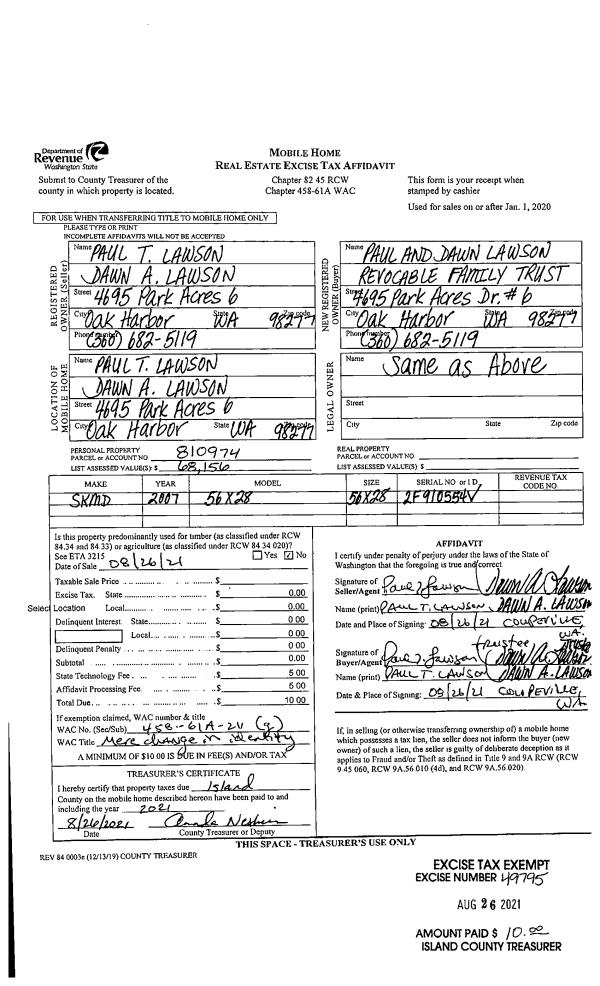 Department of
Revenue
Washington State
Submit to County Treasurer of the
county in which property is located.
MOBILE HOME
REAL ESTATE EXCISE TAX AFFIDAVIT
Chapter 82 45 RCW
Chapter 458-61A WAC
This form is your receipt when
stamped by cashier
Used for sales on or after Jan. 1, 2020
FOR USE WHEN TRANSFERRING TITLE TO MOBILE HOME ONLY
PLEASE TYPE OR PRINT
INCOMPLETE AFFIDAVITS WILL NOT BE ACCEPTED
REGISTERED OWNER (Seller)
Name PAUL T. LAWSON
DAWN A. LAWSON
Street 4695 Park Acres 6
City Oak Harbor State WA Zip code 98277
Phone number (360) 682-5119
NEW REGISTERED OWNER (Buyer)
Name PAUL AND DAWN LAWSON
REVOCABLE FAMILY TRUST
Street 4695 Park Acres Dr. # 6
City Oak Harbor State WA Zip code 98277
Phone number (360) 682-5119
LOCATION OF MOBILE HOME
Name PAUL T. LAWSON
DAWN A. LAWSON
Street 4695 Park Acres 6
City Oak Harbor State WA Zip code 98277
LEGAL OWNER
Name Same as Above
Street
City State Zip code
PERSONAL PROPERTY
PARCEL or ACCOUNT NO 810974
LIST ASSESSED VALUE(S) $ 68,156
REAL PROPERTY
PARCEL or ACCOUNT NO.
LIST ASSESSED VALUE(S) $
MAKE YEAR MODEL SIZE SERIAL NO or I D. REVENUE TAX CODE NO
SKMD 2007 56X28 56X28 2F910554V
Is this property predominantly used for timber (as classified under RCW
84.34 and 84.33) or agriculture (as classified under RCW 84 34 020)?
See ETA 3215 Yes ✓ No
Date of Sale 08/26/21
Taxable Sale Price $
Excise Tax. State $ 0.00
Select Location Local $ 0.00
Delinquent Interest State $ 0 00
Local $ 0 00
Delinquent Penalty $ 0 00
Subtotal $ 0.00
State Technology Fee $ 5 00
Affidavit Processing Fee $ 5 00
Total Due $ 10 00
If exemption claimed, WAC number & title
WAC No. (Sec/Sub) 458-61A-211 (g)
WAC Title Mere change in identity
A MINIMUM OF $10 00 IS DUE IN FEE(S) AND/OR TAX
TREASURER'S CERTIFICATE
I hereby certify that property taxes due Island
County on the mobile home described hereon have been paid to and
including the year 2021
8/26/2021
Date County Treasurer or Deputy
AFFIDAVIT
I certify under penalty of perjury under the laws of the State of
Washington that the foregoing is true and correct
Signature of
Seller/Agent Paul T Lawson Dawn A Lawson
Name (print) PAUL T. LAWSON DAWN A. LAWSON
Date and Place of Signing: 08/26/21 COUPEVILLE, WA.
trustee
Signature of
Buyer/Agent Paul T Lawson Dawn A Lawson
Name (print) PAUL T. LAWSON DAWN A. LAWSON
Date & Place of Signing: 08/26/21 COUPEVILLE, WA
If, in selling (or otherwise transferring ownership of) a mobile home
which possesses a tax lien, the seller does not inform the buyer (new
owner) of such a lien, the seller is guilty of deliberate deception as it
applies to Fraud and/or Theft as defined in Title 9 and 9A RCW (RCW
9 45 060, RCW 9A.56.010 (4d), and RCW 9A.56 020).
THIS SPACE - TREASURER'S USE ONLY
REV 84 0003e (12/13/19) COUNTY TREASURER
EXCISE TAX EXEMPT
EXCISE NUMBER 49795
AUG 26 2021
AMOUNT PAID $ 10.00
ISLAND COUNTY TREASURER